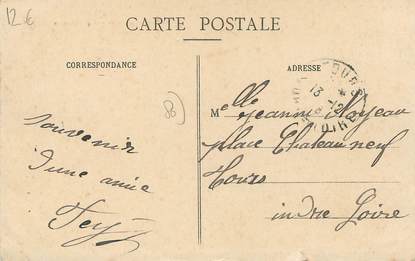 12 €
CARTE POSTALE
CORRESPONDANCE
ADRESSE
Souvenir
d'une amie
M elle Jeanne
place Chateauneuf
Tours
indre Loire